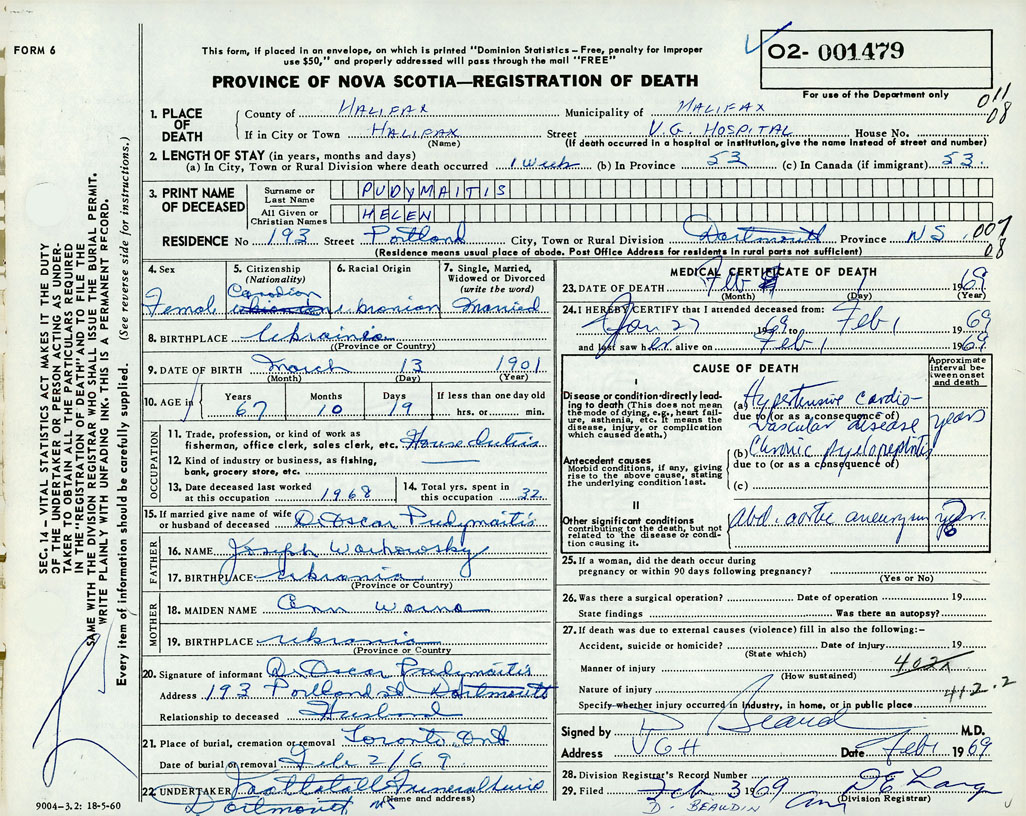 FORM 6
This form, if placed in an envelope, on which is printed "Dominion Statistics – Free, penalty for improper
use $50," and properly addressed will pass through the mail "FREE"
PROVINCE OF NOVA SCOTIA—REGISTRATION OF DEATH
O2- 001479
For use of the Department only
011
08
1. PLACE OF DEATH
County of HALIFAX Municipality of HALIFAX
If in City or Town HALIFAX Street V.G. HOSPITAL House No.
(Name) (If death occurred in a hospital or institution, give the name instead of street and number)
2. LENGTH OF STAY (in years, months and days)
(a) In City, Town or Rural Division where death occurred 1 week (b) In Province 53 (c) In Canada (if immigrant) 53.
3. PRINT NAME OF DECEASED
Surname or Last Name PUDYMAITIS
All Given or Christian Names HELEN
RESIDENCE No 193 Street Portland City, Town or Rural Division Dartmouth Province NS 007
08
(Residence means usual place of abode. Post Office Address for residents in rural parts not sufficient)
4. Sex
Female
5. Citizenship (Nationality)
Canadian
6. Racial Origin
Ukranian
7. Single, Married, Widowed or Divorced (write the word)
Married
8. BIRTHPLACE Ukrainia
(Province or Country)
9. DATE OF BIRTH March 13 1901
(Month) (Day) (Year)
10. AGE in
Years Months Days If less than one day old
67 10 19 hrs. or min.
OCCUPATION
11. Trade, profession, or kind of work as
fisherman, office clerk, sales clerk, etc. House duties
12. Kind of industry or business, as fishing,
bank, grocery store, etc.
13. Date deceased last worked
at this occupation 1968
14. Total yrs. spent in
this occupation 32.
15. If married give name of wife
or husband of deceased Dr Oscar Pudymaitis
FATHER
16. NAME Joseph
17. BIRTHPLACE Ukrania
(Province or Country)
MOTHER
18. MAIDEN NAME Ann
19. BIRTHPLACE Ukrania
(Province or Country)
20. Signature of informant Dr Oscar Pudymaitis
Address 193 Portland St Dartmouth
Relationship to deceased Husband
21. Place of burial, cremation or removal Toronto Ont
Date of burial or removal Feb 2/69
22. UNDERTAKER Funeral
(Name and address)
Dartmouth NS
9004-3.2: 18-5-60
MEDICAL CERTIFICATE OF DEATH
23. DATE OF DEATH Feb 1 1969
(Month) (Day) (Year)
24. I HEREBY CERTIFY that I attended deceased from:
Jan 27 1969 to Feb 1 1969
and last saw her alive on Feb 1 1969
CAUSE OF DEATH
Approximate interval between onset and death
I
Disease or condition directly leading to death (This does not mean the mode of dying, e.g., heart failure, asthenia, etc. It means the disease, injury, or complication which caused death.)
(a) Hypertensive cardio-
due to (or as a consequence of)
vascular disease years
Antecedent causes
Morbid conditions, if any, giving rise to the above cause, stating the underlying condition last.
(b) Chronic pyelonephritis
due to (or as a consequence of)
(c)
II
Other significant conditions contributing to the death, but not related to the disease or condition causing it.
Abd. aortic aneurysm years
25. If a woman, did the death occur during
pregnancy or within 90 days following pregnancy?
(Yes or No)
26. Was there a surgical operation? Date of operation 19
State findings Was there an autopsy?
27. If death was due to external causes (violence) fill in also the following:–
Accident, suicide or homicide? Date of injury 19
(State which)
Manner of injury 402x
(How sustained)
Nature of injury 412.2
Specify whether injury occurred in industry, in home, or in public place
Signed by D Beaud M.D.
Address VGH Date Feb 1 1969
28. Division Registrar's Record Number
29. Filed Feb 3 1969
(Division Registrar)
D. BEAUDIN
SEC. 14 – VITAL STATISTICS ACT MAKES IT THE DUTY
OF THE UNDERTAKER OR PERSON ACTING AS UNDER-
TAKER TO OBTAIN ALL THE PARTICULARS REQUIRED
IN THE "REGISTRATION OF DEATH" AND TO FILE THE
SAME WITH THE DIVISION REGISTRAR WHO SHALL ISSUE THE BURIAL PERMIT.
WRITE PLAINLY WITH UNFADING INK. THIS IS A PERMANENT RECORD.
Every item of information should be carefully supplied. (See reverse side for instructions.)